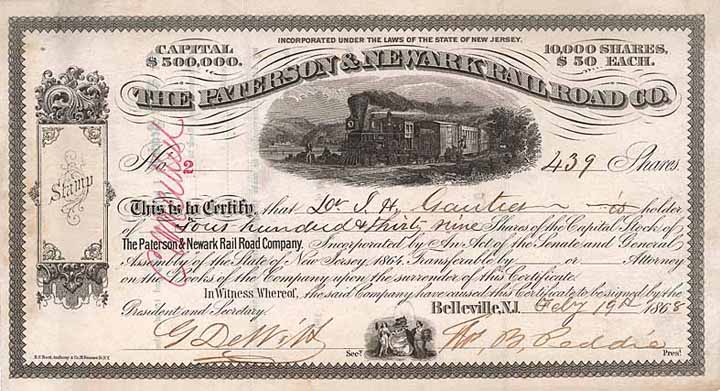 INCORPORATED UNDER THE LAWS OF THE STATE OF NEW JERSEY.
CAPITAL
$500,000.
10,000 SHARES,
$50 EACH.
THE PATERSON & NEWARK RAIL ROAD CO.
Stamp
No. 2
439 Shares
This is to Certify, that Dr J. H. Gautier is holder
of Four hundred & thirty nine Shares of the Capital Stock of
The Paterson & Newark Rail Road Company. Incorporated by An Act of the Senate and General
Assembly of the State of New Jersey 1864. Transferable by or Attorney
on the Books of the Company upon the surrender of this Certificate.
In Witness Whereof, the said Company have caused this Certificate to be signed by the
President and Secretary.
Belleville, N.J. Feby 19th 1868
G DeWitt Secy. Thos B. Peddie Prest.